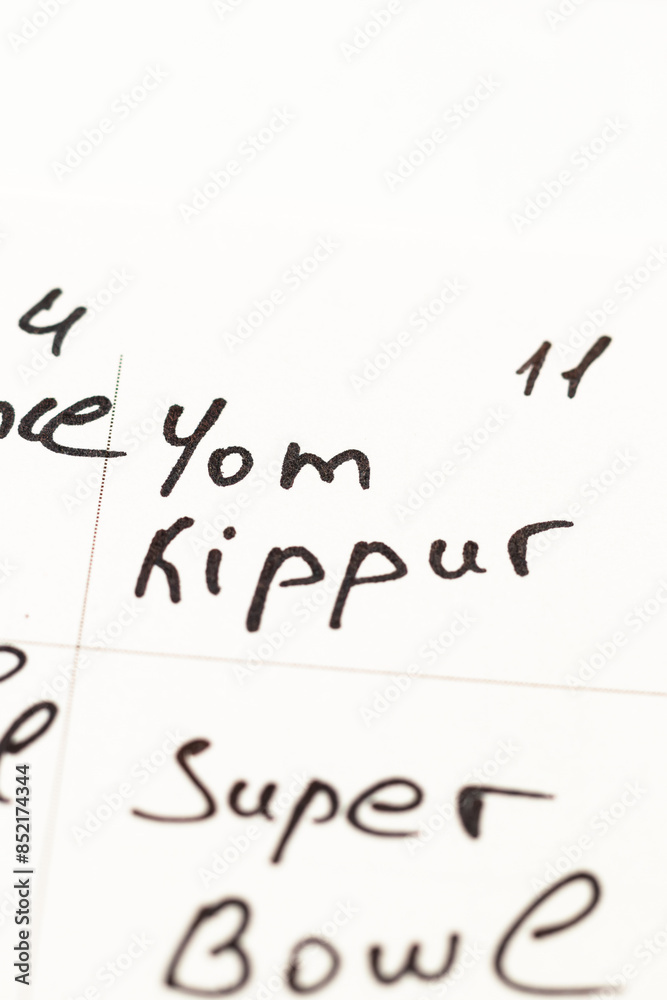 4
11
Yom
Kippur
Super
Bowl
Adobe Stock | #852174344